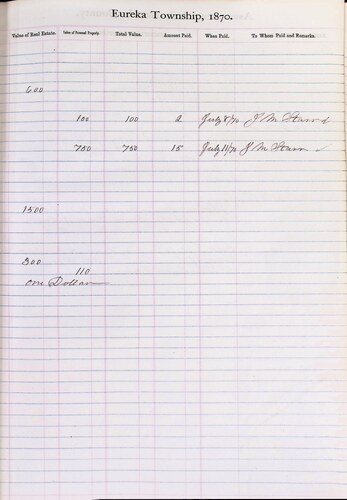 Eureka Township, 1870.
Value of Real Estate. Value of Personal Property. Total Value. Amount Paid. When Paid. To Whom Paid and Remarks.
600
100 100 2 July 8/70 J M Starr
750 750 15 July 11/70 J M Starr
1500
300
110
one Dollar